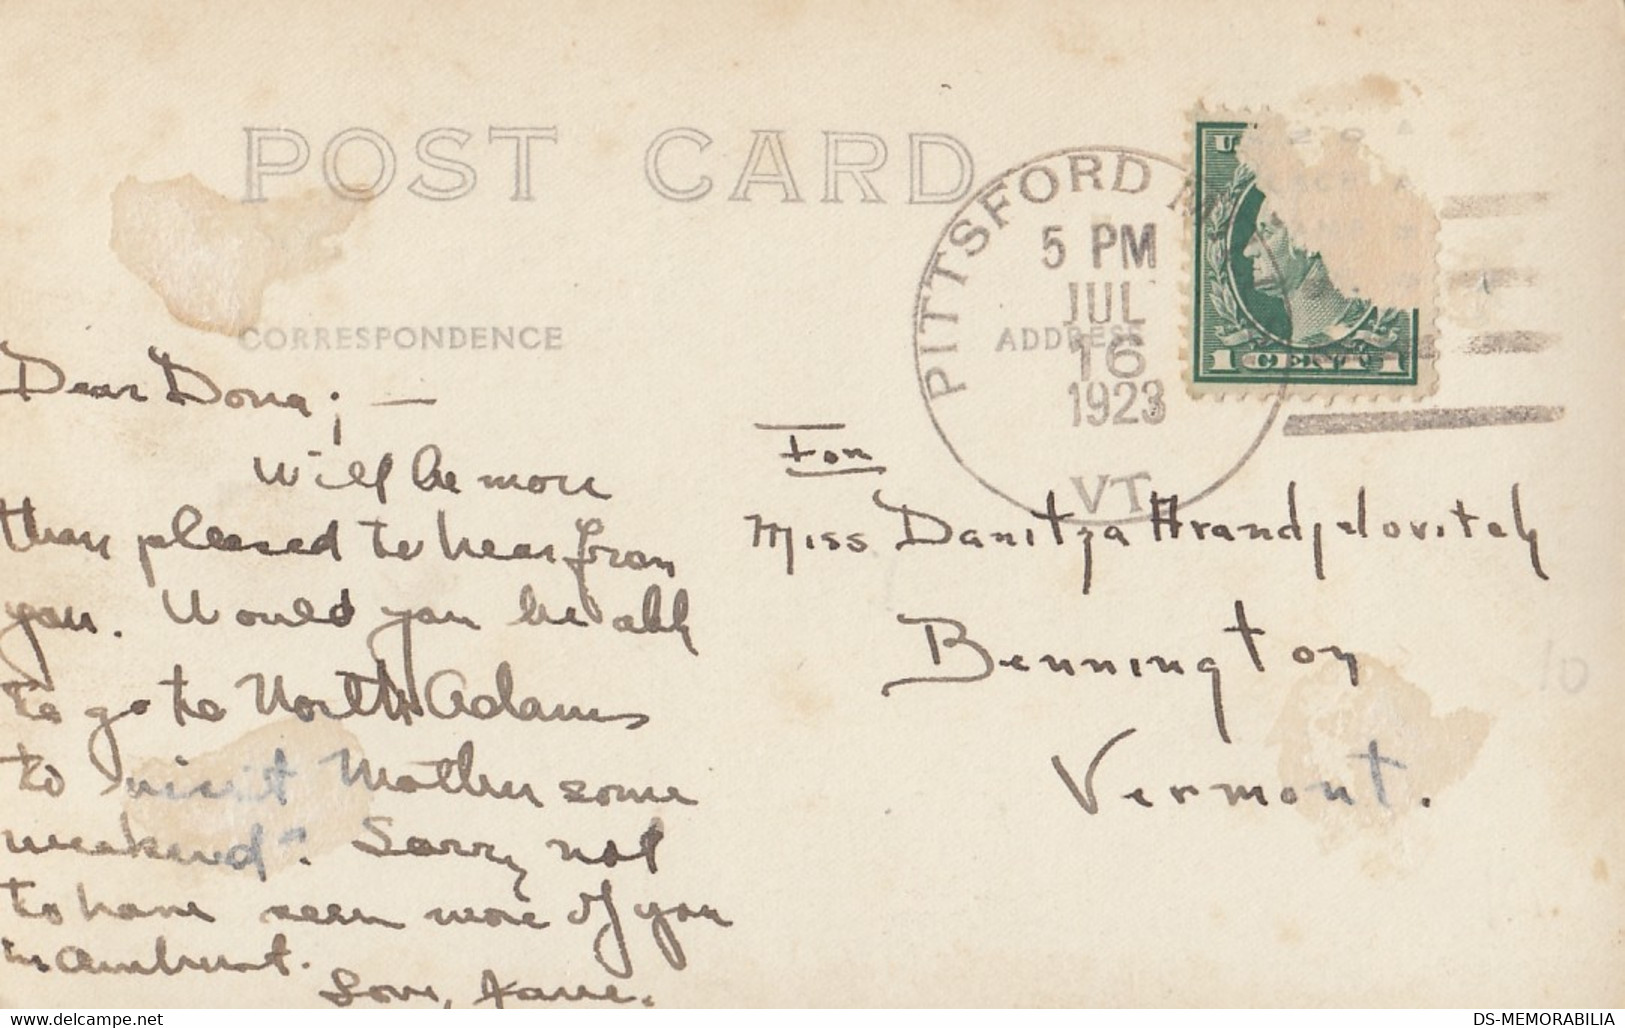 POST CARD
CORRESPONDENCE
ADDRESS
PITTSFORD
5 PM
JUL
16
1923
VT
U
1 CENT 1
Dear Dona; —
Will be more
than pleased to hear from
you. Would you be able
to go to North Adams
to visit Mother some
weekend? Sorry not
to have seen more of you
in Amherst.
Love, Jane.
For
Miss Danitza Hrandjelovitch
Bennington
Vermont.
10
www.delcampe.net
DS-MEMORABILIA